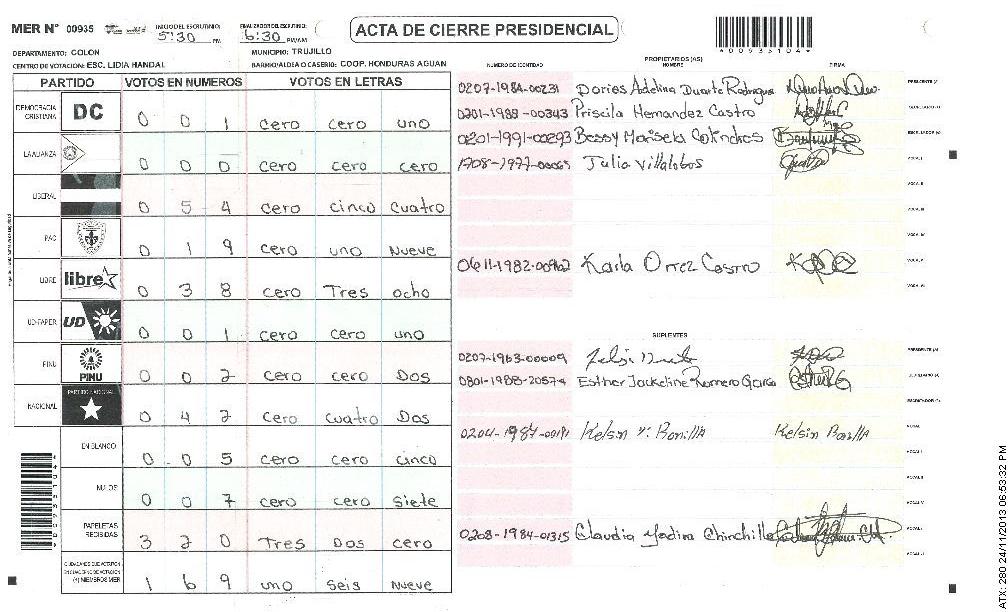 MER Nº 00935 INICIO DEL ESCRUTINIO: 5:30 PM FINALIZACION DEL ESCRUTINIO: 6:30 PM/AM ACTA DE CIERRE PRESIDENCIAL
*00935104*
DEPARTAMENTO: COLON MUNICIPIO: TRUJILLO
CENTRO DE VOTACION: ESC. LIDIA HANDAL BARRIO/ALDEA O CASERIO: COOP. HONDURAS AGUAN
PARTIDO VOTOS EN NUMEROS VOTOS EN LETRAS
DEMOCRACIA CRISTIANA DC 0 0 1 cero cero uno
LA ALIANZA 0 0 0 cero cero cero
LIBERAL 0 5 4 cero cinco cuatro
PAC 0 1 9 cero uno Nueve
LIBRE libre 0 3 8 cero Tres ocho
UD-FAPER UD 0 0 1 cero cero uno
PINU PINU 0 0 2 cero cero Dos
NACIONAL PARTIDO NACIONAL 0 4 2 cero cuatro Dos
EN BLANCO 0 0 5 cero cero cinco
NULOS 0 0 7 cero cero siete
PAPELETAS RECIBIDAS 3 2 0 Tres Dos cero
CIUDADANOS QUE VOTARON EN CUADERNO DE VOTACION (+) MIEMBROS MER 1 6 9 uno seis Nueve
PROPIETARIOS (AS)
NUMERO DE IDENTIDAD NOMBRE FIRMA
0207-1984-00231 Dories Adelina Duarte Rodriguez PRESIDENTE (A)
0201-1988-00343 Priscila Hernandez Castro SECRETARIO (A)
0201-1991-00293 Bessy Marisela ESCRUTADOR (A)
1708-1977-00065 Julia Villalobos VOCAL I
VOCAL II
VOCAL III
VOCAL IV
Karla Castro VOCAL V
VOCAL VI
SUPLENTES
0207-1963-00009 PRESIDENTE (A)
0801-1988-20574 Esther Jackeline Romero Garcia SECRETARIO (A)
ESCRUTADOR (A)
Kelsin Y. Bonilla Kelsin Bonilla VOCAL I
0208-1984-01315 Claudia Yadira Chinchilla
ATX: 280 24/11/2013 06:53:32 PM